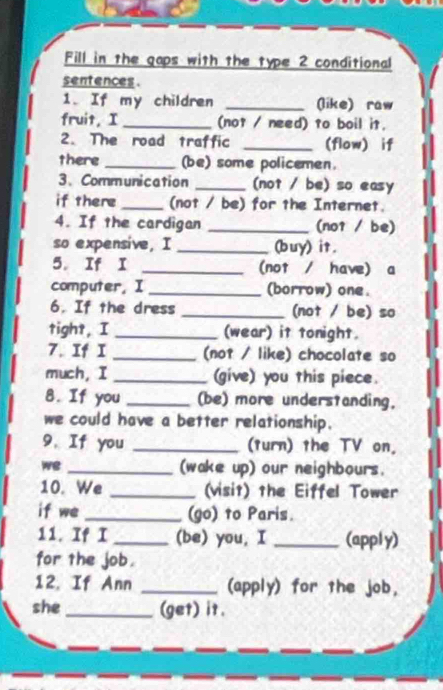 Fill in the gaps with the type 2 conditional
sentences.
1. If my children ________ (like) raw
fruit, I ________ (not / need) to boil it.
2. The road traffic ________ (flow) if
there ________ (be) some policemen.
3. Communication ________ (not / be) so easy
if there ________ (not / be) for the Internet.
4. If the cardigan ________ (not / be)
so expensive, I ________ (buy) it.
5. If I ________ (not / have) a
computer, I ________ (borrow) one.
6. If the dress ________ (not / be) so
tight, I ________ (wear) it tonight.
7. If I ________ (not / like) chocolate so
much, I ________ (give) you this piece.
8. If you ________ (be) more understanding,
we could have a better relationship.
9. If you ________ (turn) the TV on,
we ________ (wake up) our neighbours.
10. We ________ (visit) the Eiffel Tower
if we ________ (go) to Paris.
11. If I ________ (be) you, I ________ (apply)
for the job.
12. If Ann ________ (apply) for the job,
she ________ (get) it.